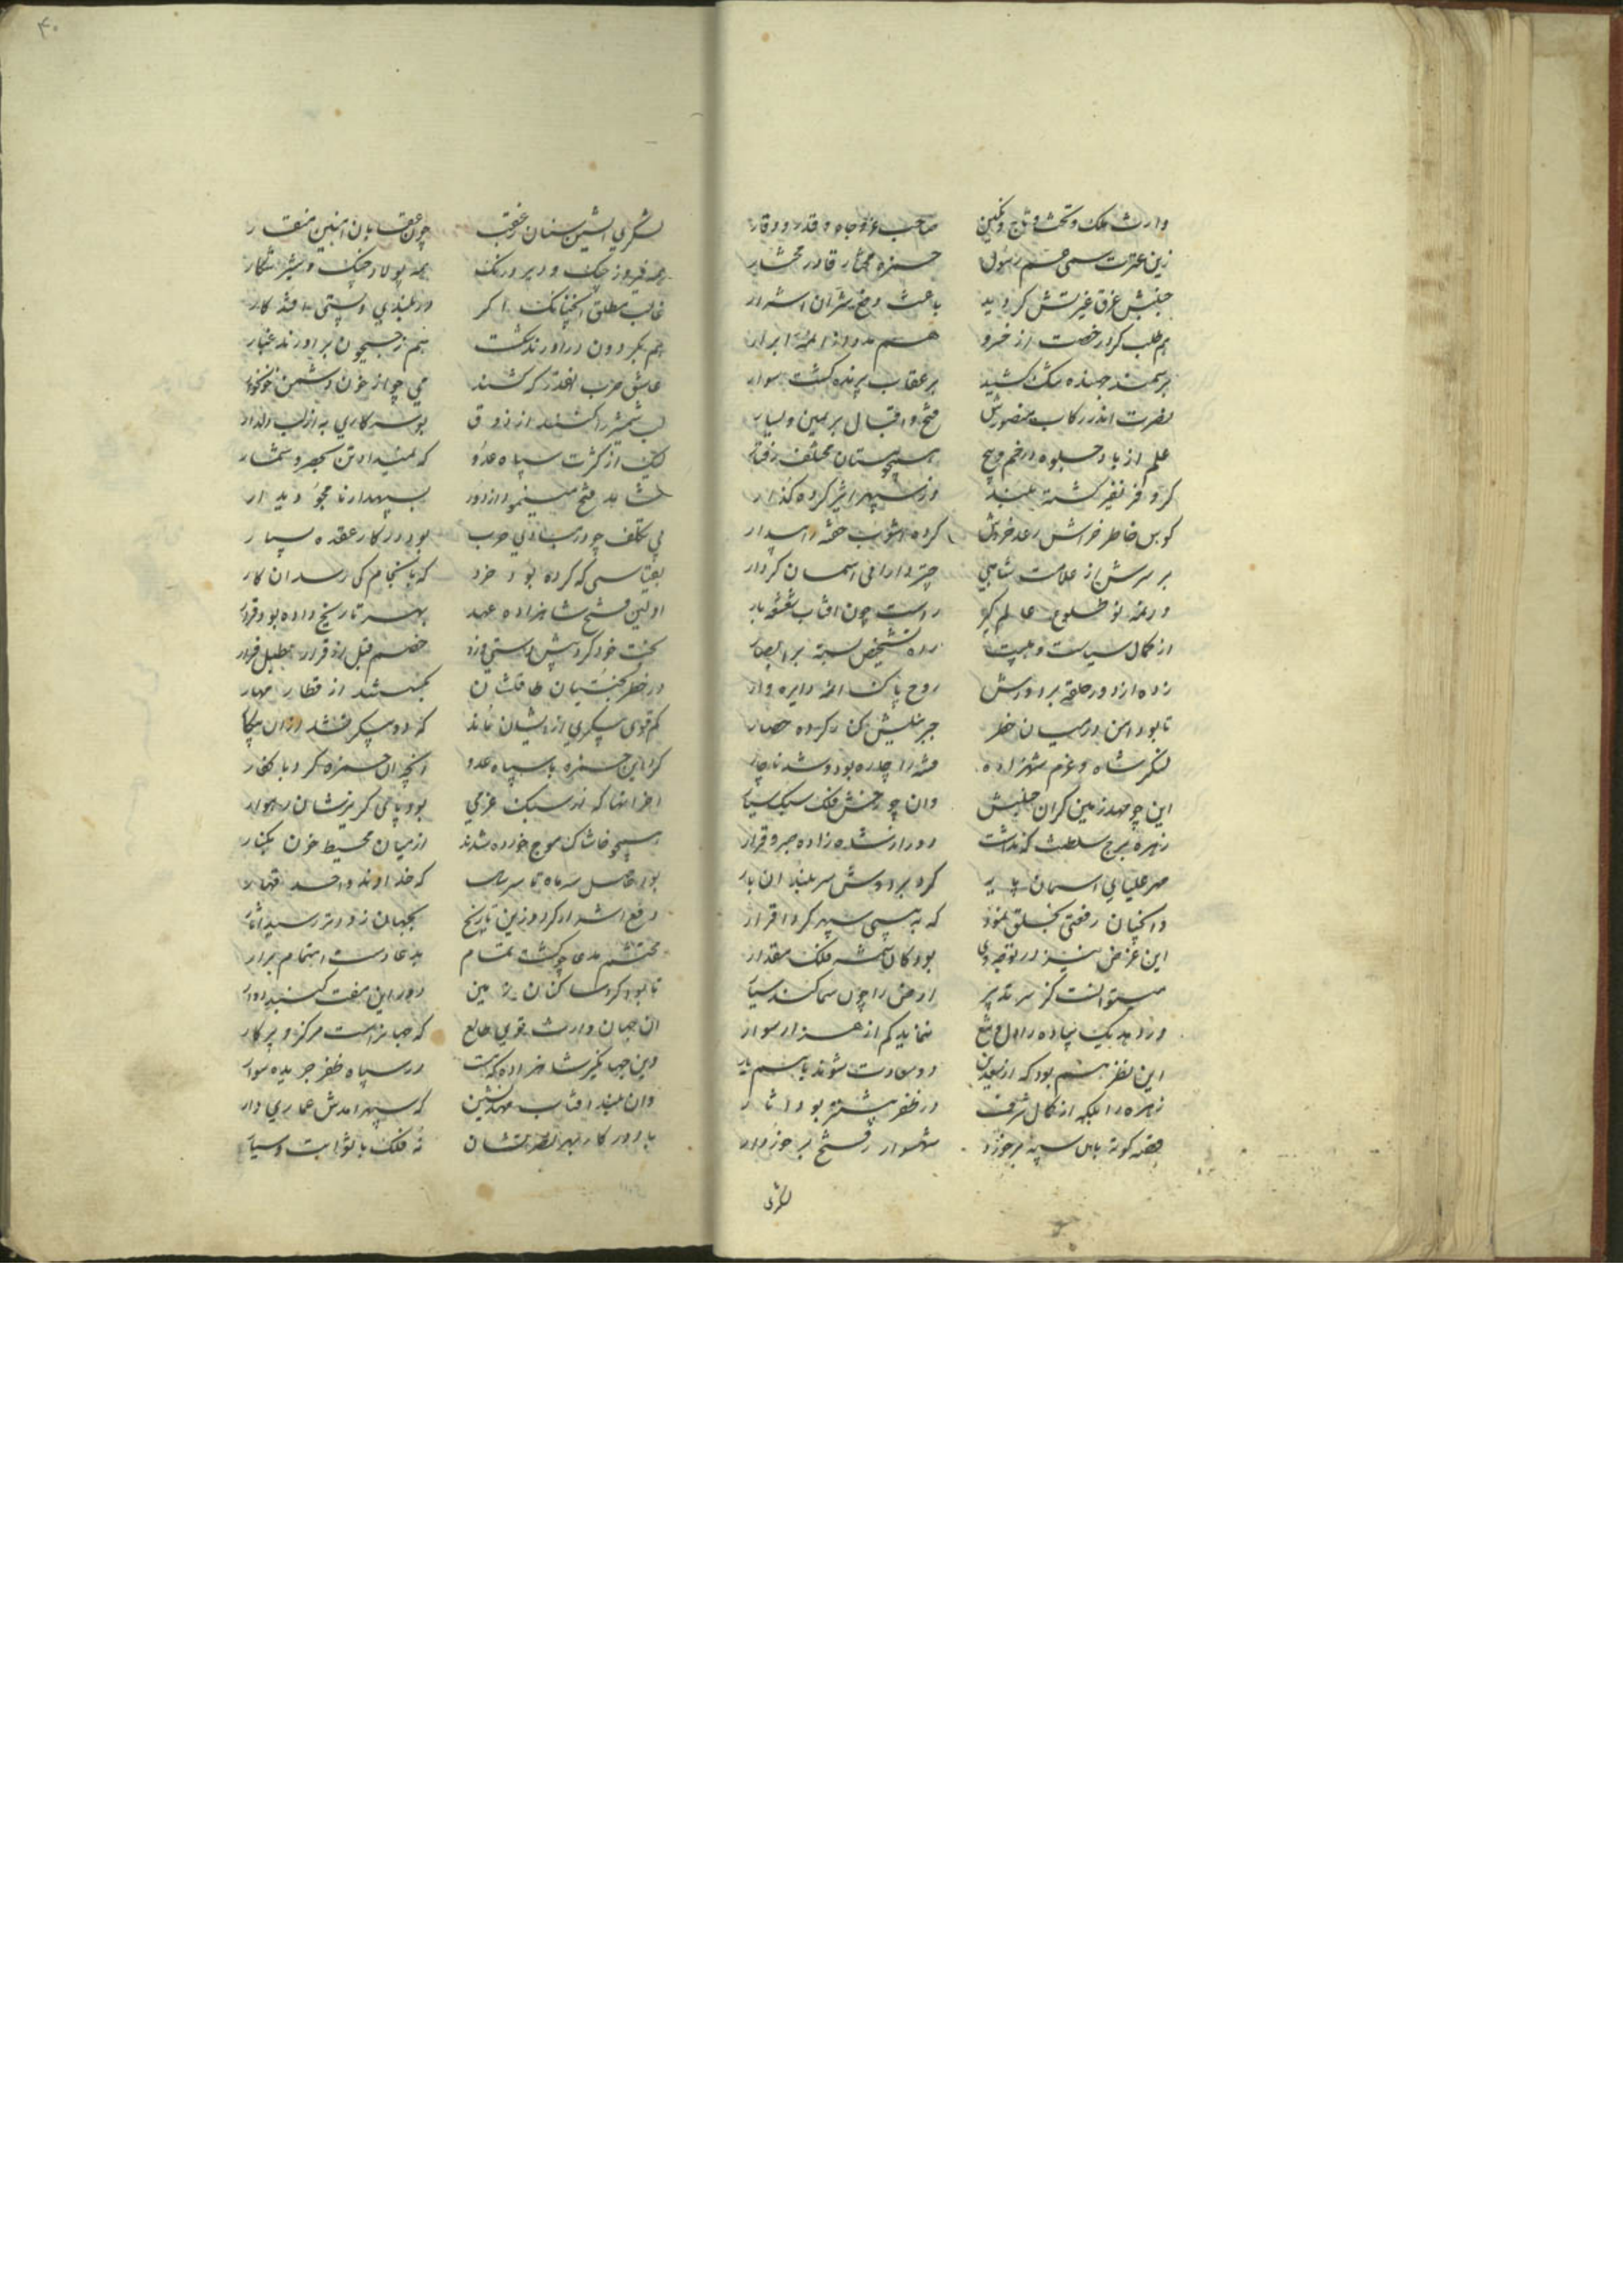 وارث ملک و تخت و تاج و نکین صاحب عز و جاه و قدر و وقار
زین عترت سمی عم رسول حمزه مختار قادر مختار
جنبش عرق غیرتش کردید باعث دفع شر آن اشرار
هم طلب کرد رخصت از خسرو هم مدد از ائمه ابرار
بر سمند جهنده تنک کشید بر عقاب پرنده کشت سوار
نصرت اندر رکاب منصورش فتح و اقبال بر یمین و یسار
علم از باد جلوه در خم و پیچ همچو مستان مختلف رفتار
کر و فر نفیر کشته بلند وز سپهر اثیر کرده کذار
کوس خاطر خراش رعد خروش کرده آشوب خفته را بیدار
بر سرش از علامت شاهی چتر دارائی آسمان کردار
در ته تو طلوع عالم کیر روست چون آفتاب شعشعه بار
از کمال سیاست و هیبت ره تشخیص بسته بر ابصار
زده از دور حلقه بر دورش روح پاک ائمه دایره وار
تا بود امن در میان خطر جبرئیلش کنار کرده حصار
لنکر شاه و عزم شهزاده فتنه را چاره بود و شد ناچار
این چو مهد زمین کران جنبش وان چو رخش فلک سبک سیار
زهره برج سلطنت که نداشت دور از شاه زاده صبر و قرار
مهر علیای آسمان پایه کرد بر دوش سربلند آن بار
وانچنان رفعتی بخلق نمود که به پستی سپهر کرد اقرار
این غرض نیز در توجه وی بود کان شمسه فلک مقدار
میتوانست کز سر تدبیر ارض را چون سما کند سیار
ور دهد یک پیاده را دل و تیغ نماید کم از هزار سوار
این نظر هم بود که از سعدین دو سعادت شوند با هم یار
زهره را بلکه از کمال شرف در ظفر بیشتر بود آثار
قصه کوته باین سپه بر خورد شهسوار فتح بر خوردار
لشکری
لشکری آتشین سنان و غضب چون عقابان آهنین منقار
همه فیروز جنک و دیر درنک همه پولاد چنک و شیر شکار
غالب مطلق آنچنانکه اکر در بلندی و پستی افتد کار
هم بکردون در آورند شکست هم ز جیحون برآورند غبار
عاشق حرب آنقدر که کشند می چو از خون دشمن خونخوار
لب شمشیر را کنند از ذوق بوسه کاری به از لب دلدار
لیک از کثرت سپاه عدو که نمیداد تن بحصر و شمار
شاهد فتح مینمود از دور بسپهدار نامجو دیدار
بی تکلف چو در مبادی حرب بود در کار عقده بسیار
بقیاسی که کرده بود خرد که بانجام کی رسد آن کار
اولین فتح شاهزاده عهد بهر تاریخ داده بود قرار
بخت خود کرد پیش دستی و زد خصم قبل از قرار طبل فرار
در خطر کجنتیان طاقتشان بکسسته شد از قطار مهار
کم قوی پیکری از ایشان ماند که دو پیکر نشد در آن پیکار
کرد این حمزه با سپاه عدو آنچه آن حمزه کرد با کفار
آخر آنها که تند سبک عزمی بود پای کریزشان رهوار
همچو خاشاک موج خورده شدند از میان محیط خون بکنار
بود حاصل ز ماه تا سر سال که خداوند واحد قهار
دفع اشرار کرد و زین تاریخ بجهان زودتر رسید آثار
محتشم مدعا چو کشت تمام بدعا دست اهتمام برآر
تا بود کرد ساکنان زمین دور این هفت کنبد دوار
آن جهان وارث قوی طالع که جهانراست مرکز و پرکار
وین جهانکیر شاهزاده که هست در سپاه ظفر جریده سوار
وان بلند آفتاب مهد نشین که سپهر آمدش عماری دار
یاور کار بهر نصرتشان نه فلک با ثوابت و سیار